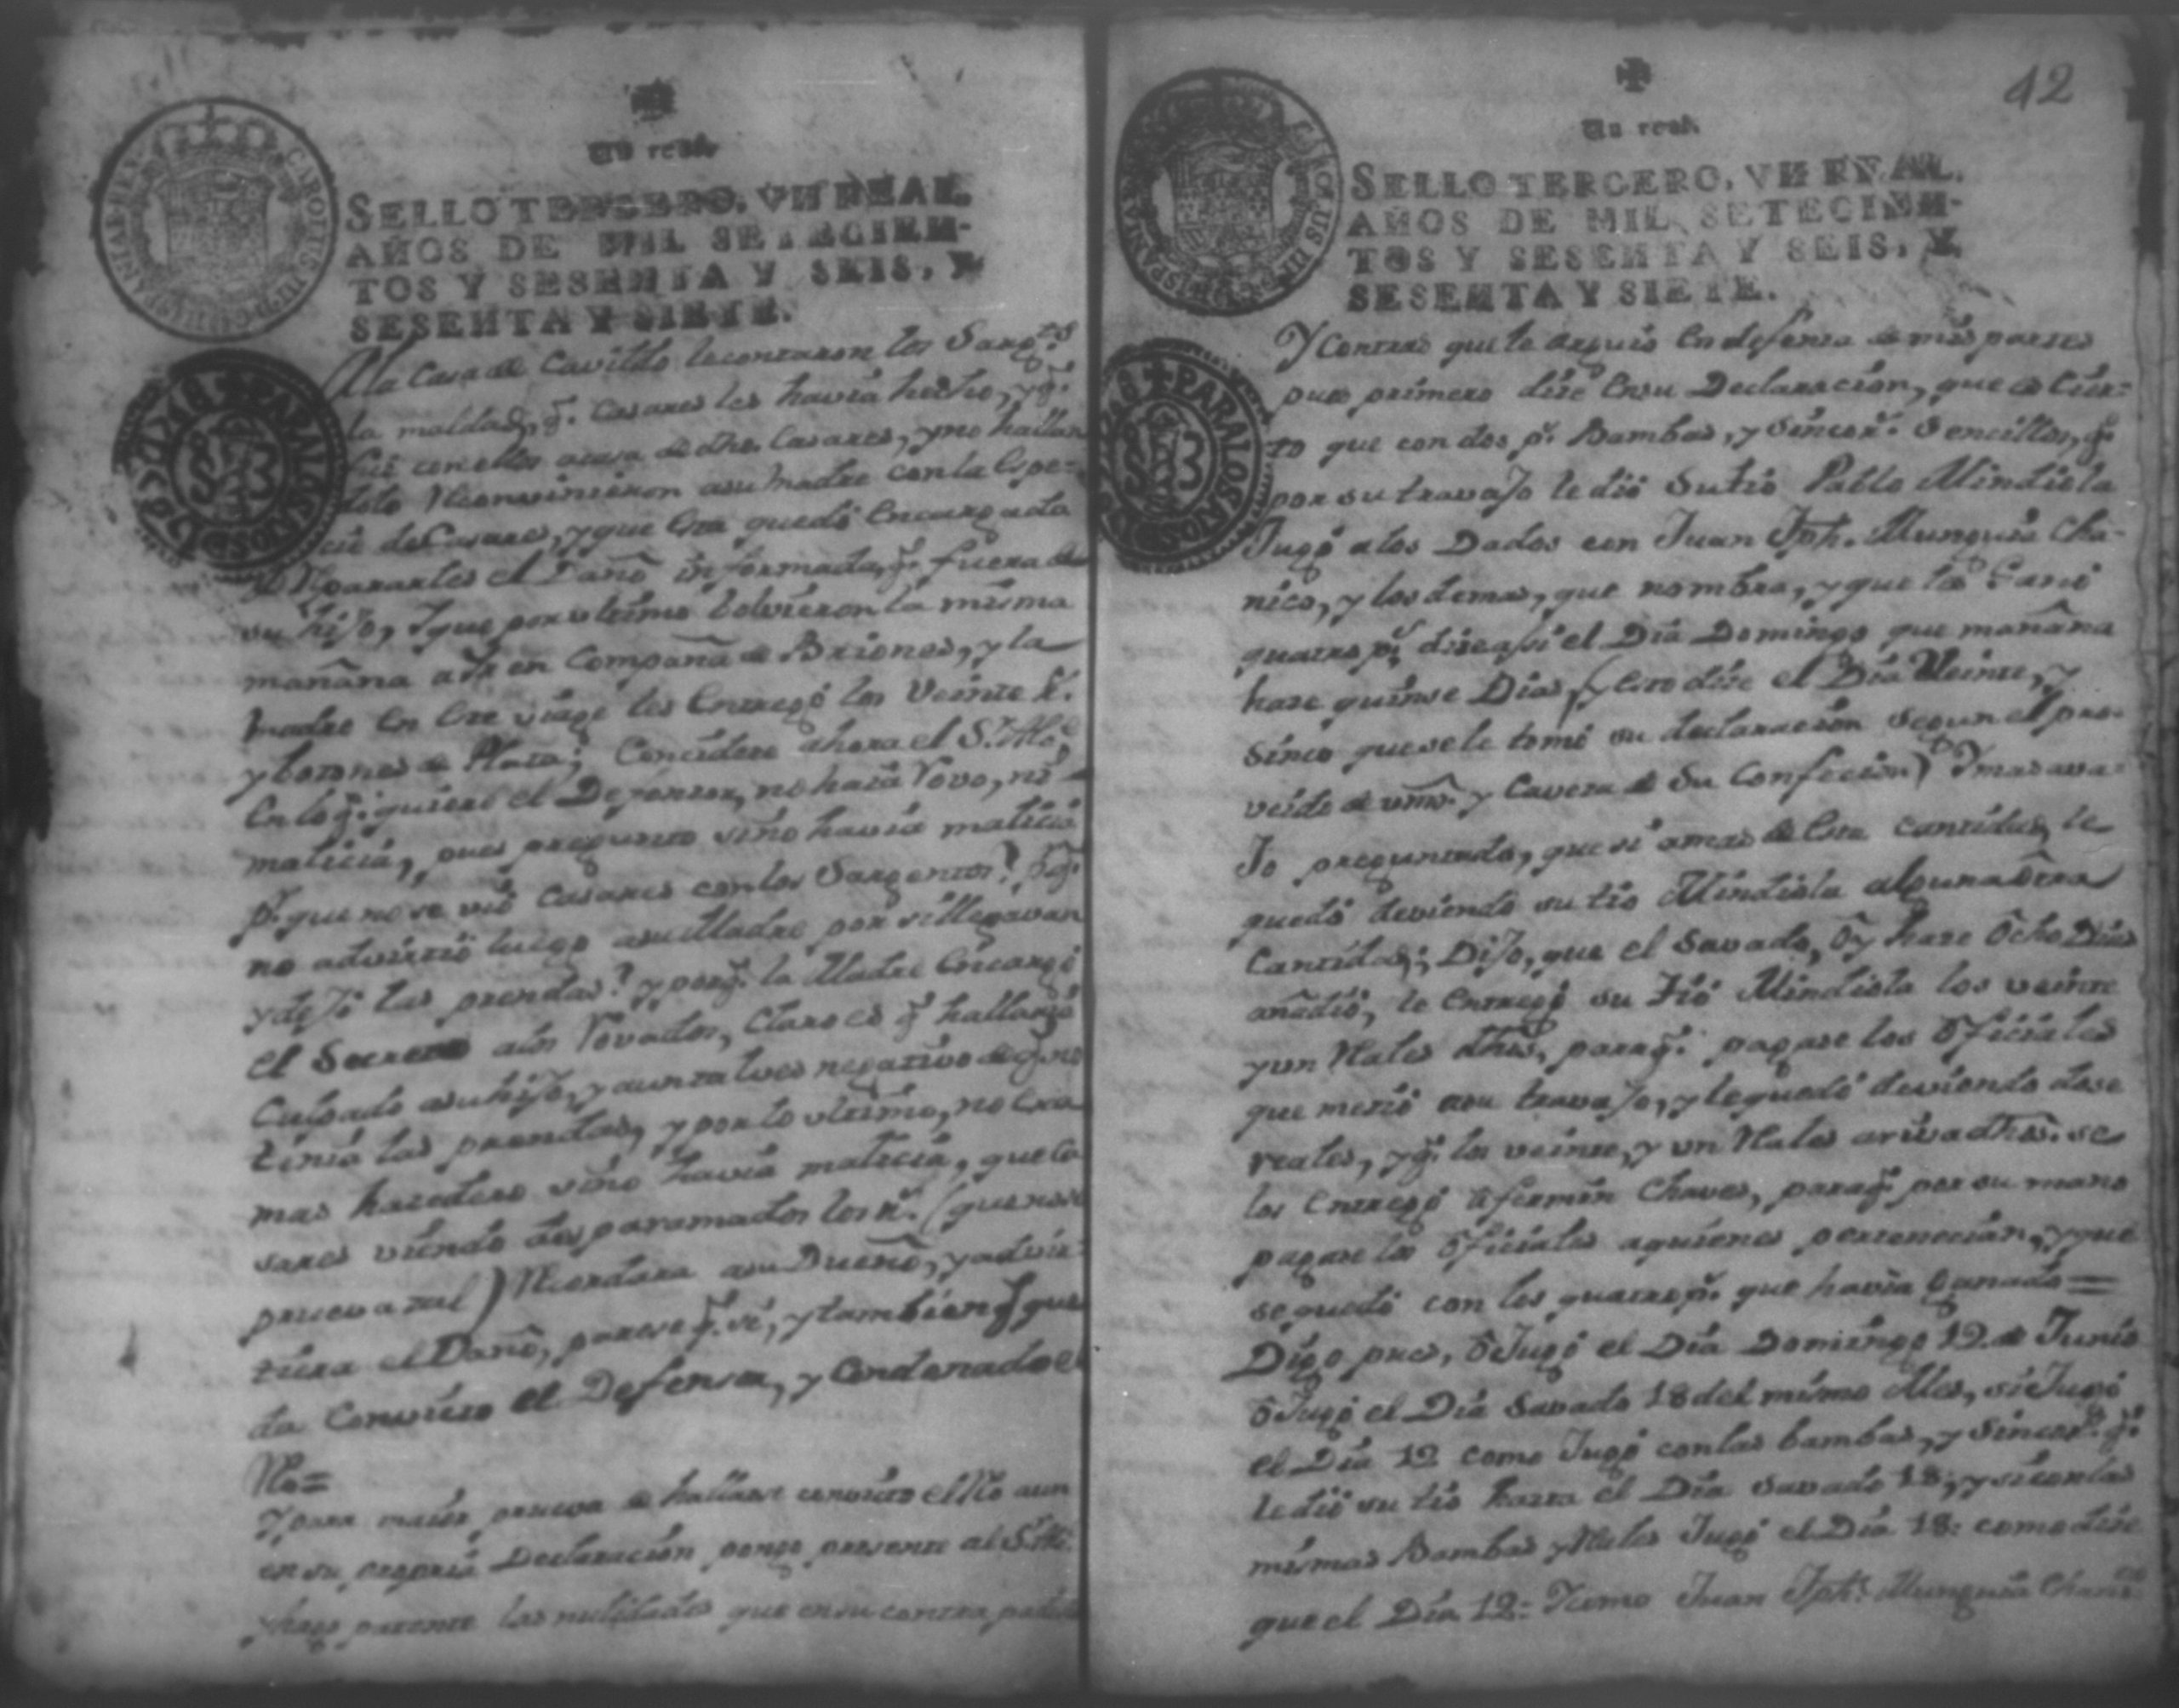 Un real.
SELLO TERCERO, VN REAL,
AÑOS DE MIL SETECIEN-
TOS Y SESENTA Y SEIS, Y
SESENTA Y SIETE.
CAROLUS III D G HISPANIAR REX
PARA LOS AÑOS D
A la Casa de Cavildo le contaron los Sarg.tos
la maldad, q.e Casares les havia hecho, y q.e
fué con ellos a casa de dho. Casares, y no hallan
dolo Reconvinieron a su Madre con la Espe-
cie de Casares, y que esta quedó encargada
de Repararles el Daño informada, q.e fuera de
su hijo, y que por ultimo bolvieron la misma
mañana a ir en Compaña de Briones, y la
Madre en este viage les Entregó los Veinte r.s
y botones de Plata; Considere ahora el S.r Alc.e
en lo q.e quiere el Defensor, no haia Rovo, ni
malicia, pues pregunto sino havia malicia
p.r que no se vió Casares con los Sargentos? P.r q.e
no advirtió luego a su Madre por si llegavan
y dejó las prendas? y porq.e la Madre Encargó
el Secreto a los Rovados, Claro es q.e hallarse
Culpado a su hijo, y aun tal vez negativo de q.e no
tenia las prendas, y por lo ultimo, no era
mas hacedero sino havia malicia, que Ca
sares viendo desparamados los r.s (que no se
prueva tal) Recordara a su Dueño, y advir
tiera el Daño, parece q.e si, y tambien q.e que
da Convicto el Defensor, y Condenado el
Reo=
Y para maior prueva de hallarse convicto el Reo aun
en su propria Declaracion pongo presente al S.r Al.
y hago patente las nulidades que en su contra
42
Un real.
SELLO TERCERO, VN REAL,
AÑOS DE MIL SETECIEN-
TOS Y SESENTA Y SEIS, Y
SESENTA Y SIETE.
CAROLUS III D G HISPANIAR
PARA LOS AÑOS D
Y Contras que le arguió en defensa de mis partes
pues primero dise en su Declaracion, que es Cier-
to que con dos p.s Bambas, y Sinco r.s Sencillos, q.e
por su travajo le dió Su tio Pablo Mindiola
Jugó a los Dados con Juan Jph. Munguia Cha-
nico, y los demas, que nombra, y que les Ganó
quatro p.s dise assi el Dia Domingo que mañana
hase quinse Dias, (y esto dise el Dia Veinte, y
Sinco que se le tomó su declaracion segun el pro-
veido de vmd. y Cavesa de Su Confecion) Y mas ava-
Jo preguntado, que si amas de esta Cantidad, le
quedó deviendo su tio Mindiola alguna otra
Cantidad; Dijo, que el Savado, oy hase Ocho Dias
añadió, le Entregó su Tio Mindiola los veinte
y un Reales dhos, paraq.e pagase los Oficiales
que metió a su travajo, y le quedó deviendo dose
reales, y q.e los veinte, y un Reales arriva dhos. se
los Entregó a fermin Chaves, paraq.e por su mano
pagase los Oficiales aquienes pertenecian, y que
se quedó con los quatro p.s que havia Ganado=
Digo pues, ó Jugó el Dia Domingo 19. de Junio
ó Jugó el Dia Savado 18 del mismo Mes, si Jugó
el Dia 19 como Jugó con las bambas, y Sinco r.s q.e
le dió su tio hasta el Dia Savado 18; y si con las
mismas Bambas y Reales Jugó el Dia 18: como dise
que el Dia 19: Y como Juan Jph. Munguia Chani